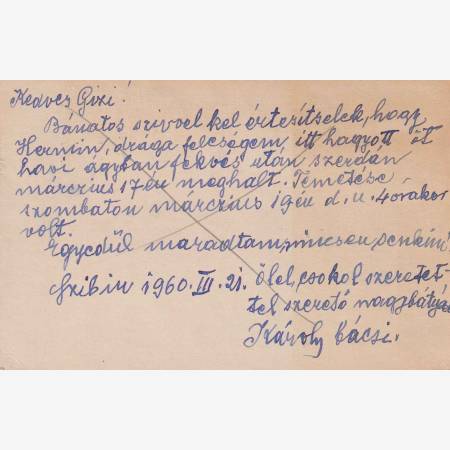 Kedves Gizi!
Bánatos szivvel kel értesitselek, hogy
Hermin, drága feleségem, itt hagyott öt
havi ágyban fekvés után szerdán
márczius 17én meghalt. Temetése
szombaton márczius 19én d. u. 4 orakor
volt.
Egyedül maradtam, nincsen senkim
Szibin 1960. III. 21. Ölel, csokol szeretet-
tel szerető nagybátyád
Károly bácsi.